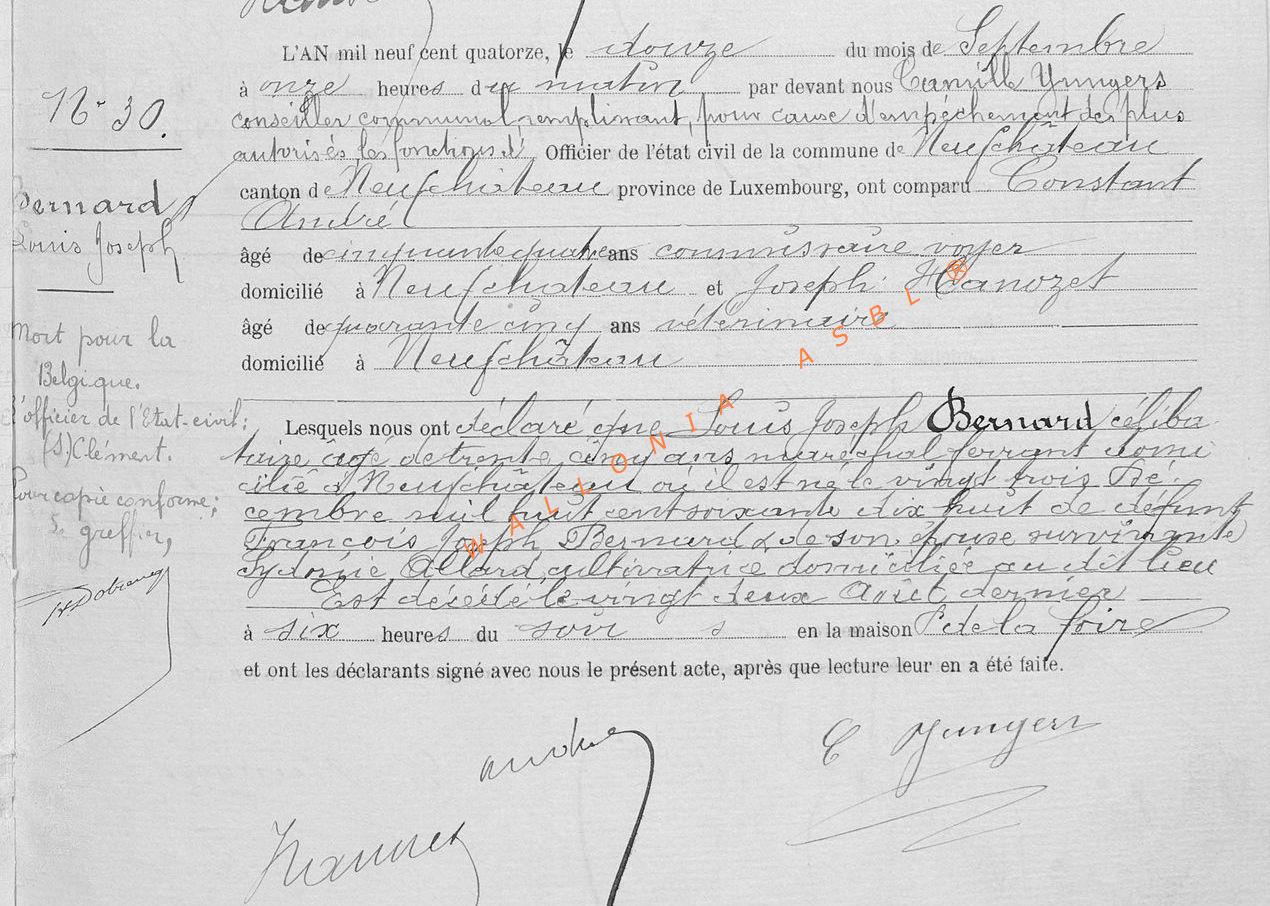 L'AN mil neuf cent quatorze, le douze du mois de Septembre
à onze heures du matin par devant nous Camille Yungers
conseiller communal, remplissant, pour cause d'empéchement des plus
autorisés, les fonctions d' Officier de l'état civil de la commune de Neufchâteau
canton de Neufchâteau province de Luxembourg, ont comparu Constant
André
âgé de cinquante quatre ans commissaire voyer
domicilié à Neufchateau et Joseph Hanozet
âgé de quarante cinq ans vétérinaire
domicilié à Neufchâteau
Lesquels nous ont déclaré que Louis Joseph Bernard céliba
taire âgé de trente cinq ans maréchal ferrant domi
cilié à Neufchâteau où il est né le vingt trois Dé
cembre mil huit cent soixante dix huit de défunt
François Joseph Bernard & de son épouse survivante
Sydonie Allard, cultivatrice domiciliée au dit lieu
Est décédé le vingt deux Août dernier
à six heures du soir s en la maison de la foire
et ont les déclarants signé avec nous le présent acte, après que lecture leur en a été faite.
andré
C Yungers
Hanozet
N° 30.
Bernard
Louis Joseph
Mort pour la
Belgique.
l'officier de l'Etat-civil:
(s) Clément.
Pour copie conforme;
Le greffier,
WALLONIA ASBL ®